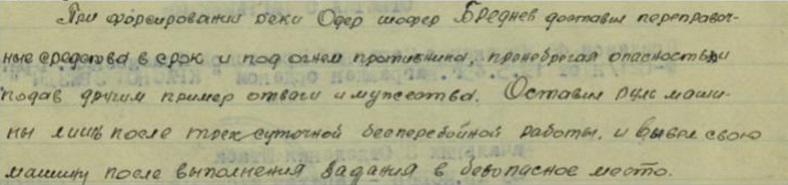 При форсировании реки Одер шофер Бреднев доставил переправоч-
ные средства в срок и под огнем противника, пренебрегая опасностью и
подав другим пример отваги и мужества. Оставил руль маши-
ны лишь после трех суточной бесперебойной работы, и вывел свою
машину после выполнения задания в безопасное место.